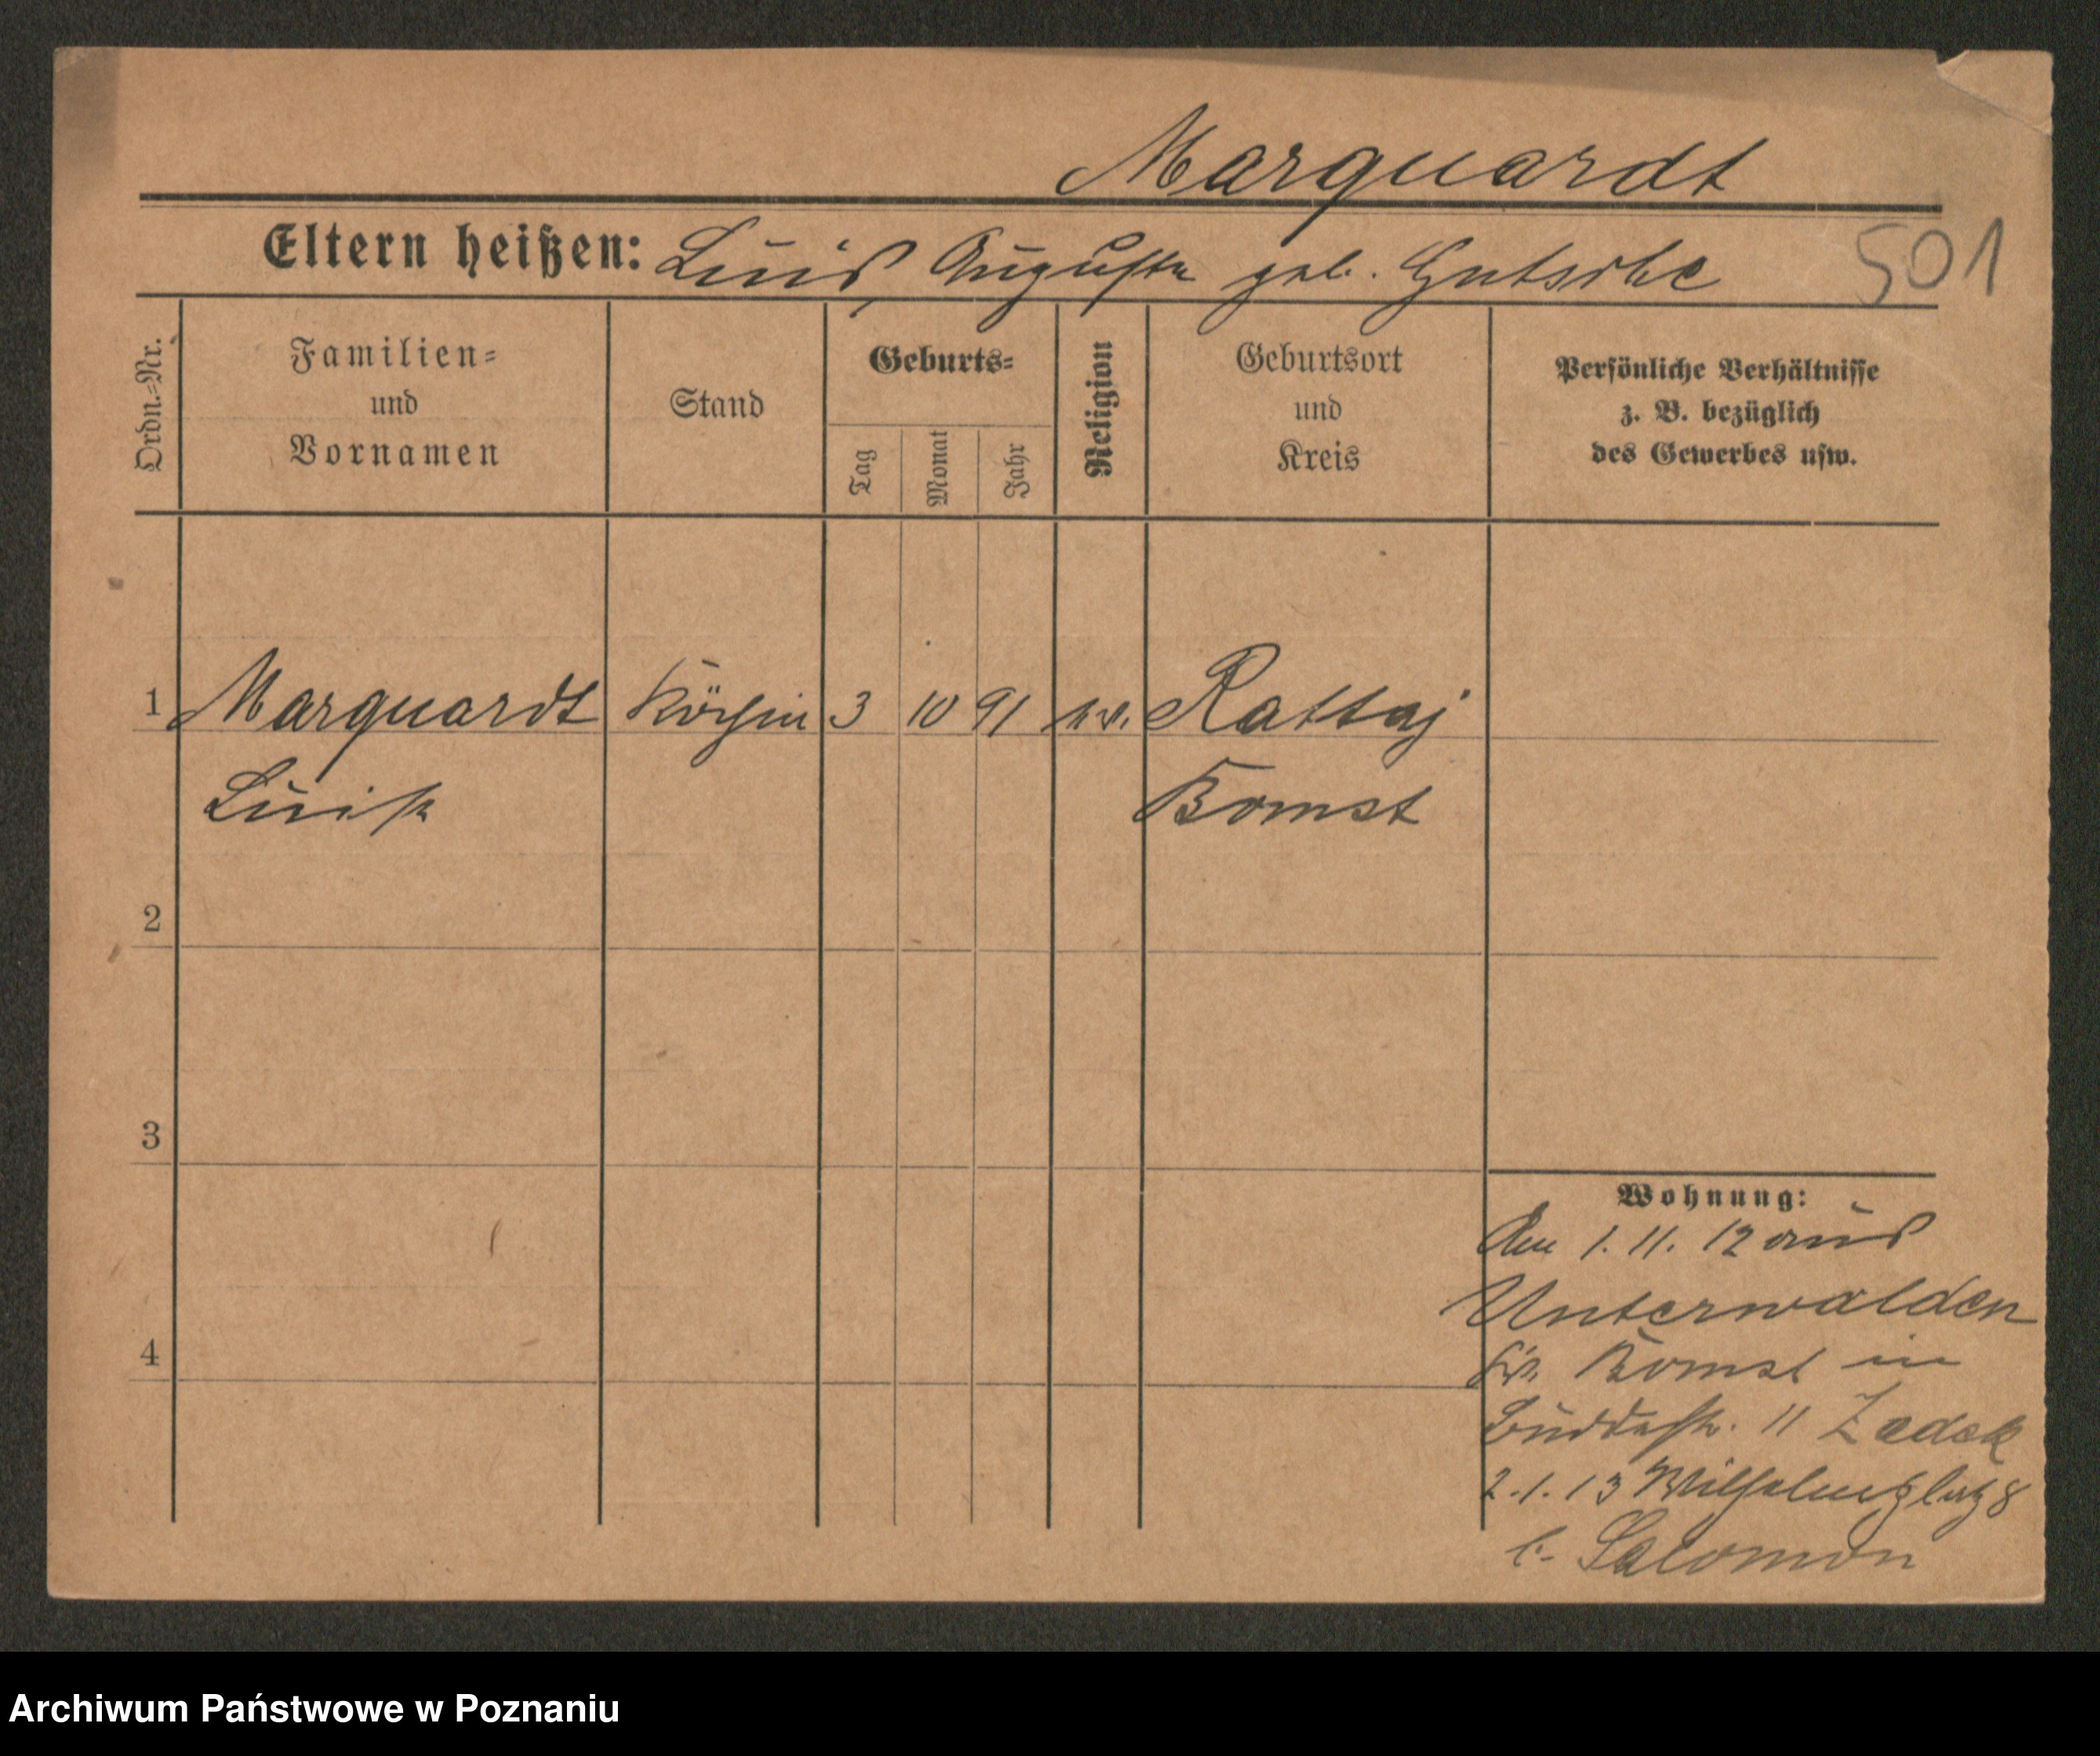 Marquardt
Eltern heißen: Luis Auguste geb. Gutsche
501
Ordn.=Nr.
Familien=
und
Vornamen
Stand
Geburts=
Tag
Monat
Jahr
Religion
Geburtsort
und
Kreis
Persönliche Verhältnisse
z. B. bezüglich
des Gewerbes usw.
1 Marquardt Köchin 3 10 91 ev. Rattaj
Luise Bomst
2
3
4
Wohnung:
Am 1. 11. 12 aus
Unterwalden
Kr. Bomst in
Buddestr. 11 Zadek
2.1.13 Wilhelmsplatz 8
b. Salomon
Archiwum Państwowe w Poznaniu